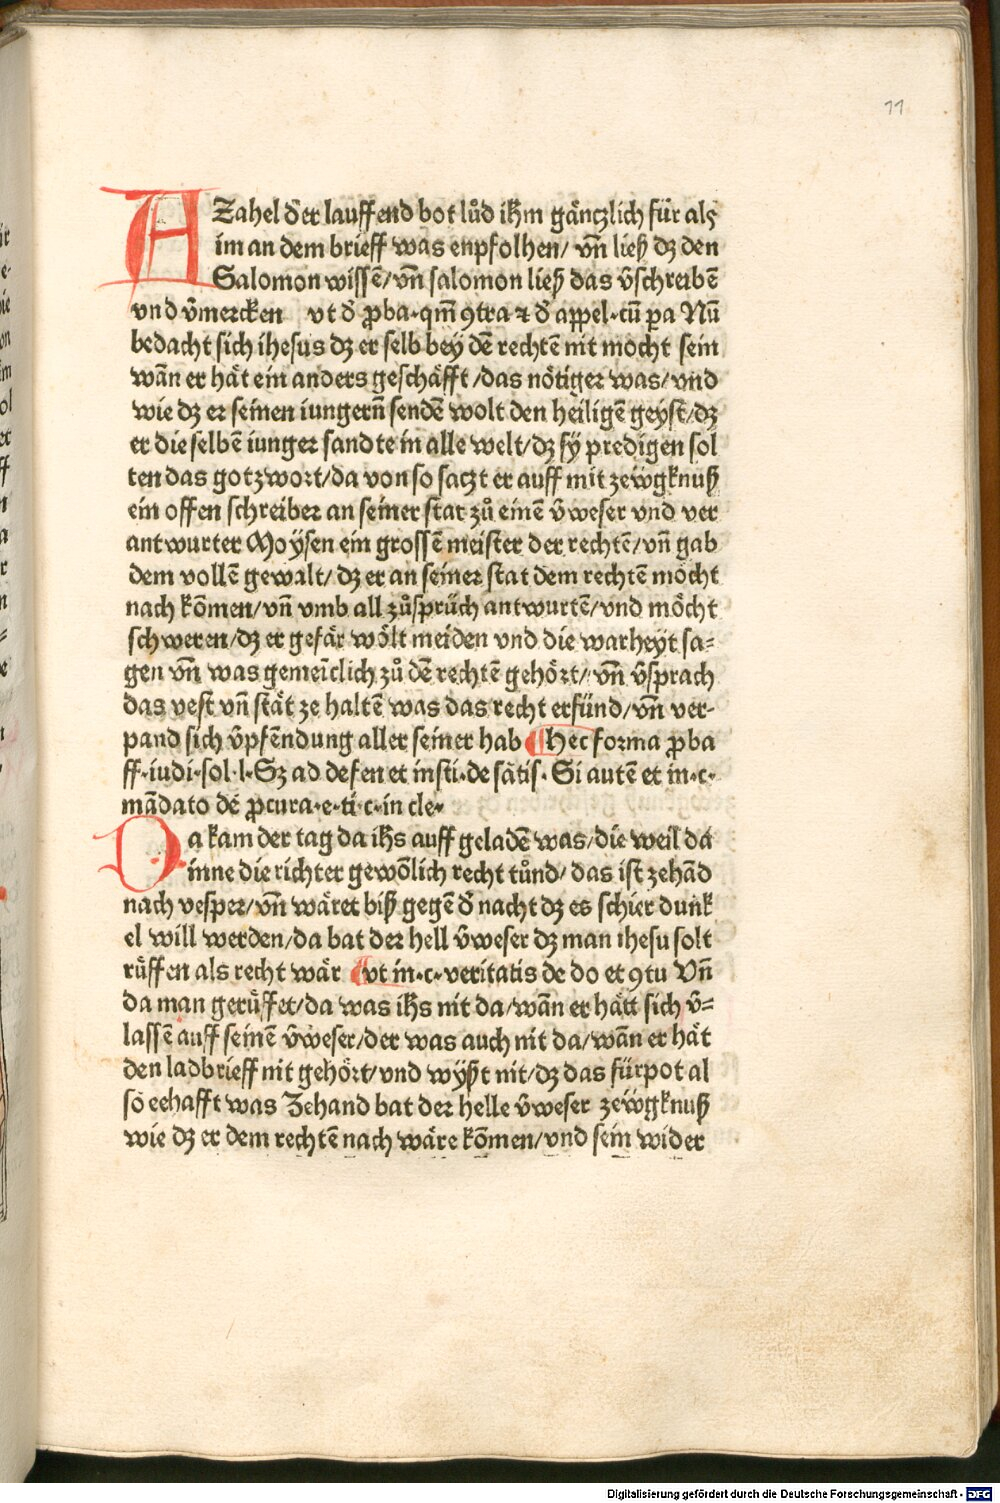 11
AZahel der lauffend bot lůd ihm gäntzlich für als
im an dem brieff was enpfolhen/ vn̄ ließ dz den
Salomon wissē/ vn̄ salomon ließ das v̄schreibē
vnd v̄mercken vt đ ꝓba·qm̄ ꝯtra ⁊ đ appel·cū ꝑa Nū
bedacht sich ihesus dz er selb bey dē rechtē nit mocht sein
wān er hät ein anders geschäfft/ das nötiger was/ vnd
wie dz er seinen iungern̄ sendē wolt den heiligē geyst/ dz
er die selbē iunger sandte in alle welt/ dz sÿ predigen sol
ten das gotzwort/ da von so saczt er auff mit zewgknuß
ein offen schreiber an seiner stat zů einē v̄weser vnd ver
antwurter Moÿsen ein grossē meister der rechtē/ vn̄ gab
dem vollē gewalt/ dz er an seiner stat dem rechtē möcht
nach kōmen/ vn̄ vmb all zůsprüch antwurtē/ vnd möcht
schweren/ dz er gefär wölt meiden vnd die warheyt sa=
gen vn̄ was gemeīclich zů dē rechtē gehört/ vn̄ v̄sprach
das vest vn̄ stät ze haltē was das recht erfünd/ vn̄ ver-
pand sich v̄pfēndung aller seiner hab ¶ Hec forma ꝓba
ff·iudi·sol·l·Sz ad defen et insti·de sātis· Si autē et in·c·
mādato dē ꝓcura·e·ti·c·in cle·
Da kam der tag da ihs auff geladē was/ die weil da
inne die richter gewōlich recht tůnd/ das ist zehād
nach vesper/ vn̄ wäret biß gegē đ nacht dz es schier dunk
el will werden/ da bat der hell v̄weser dz man ihesu solt
rüffen als recht wär ¶ vt in·c·veritatis de do et ꝯtu Vn̄
da man gerüffet/ da was ihs nit da/ wān er hätt sich v̄=
lassē auff seinē v̄weser/ der was auch nit da/ wān er hät
den ladbrieff nit gehört/ vnd wyßt nit/ dz das fürpot al
so eehafft was Zehand bat der helle v̄weser zewgknuß
wie dz er dem rechtē nach wäre kōmen/ vnd sein wider
Digitalisierung gefördert durch die Deutsche Forschungsgemeinschaft - DFG